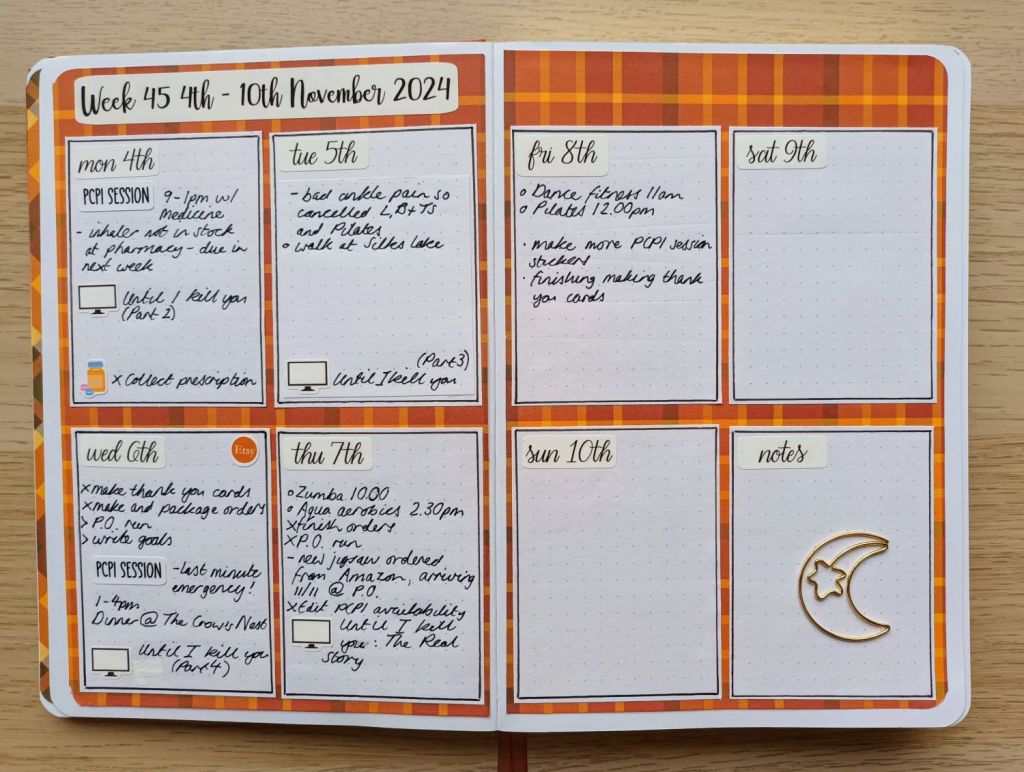 Week 45 4th - 10th November 2024
mon 4th
PCPI SESSION 9-1pm w/
Medicine
- inhaler not in stock
at pharmacy - due in
next week
Until I kill you
(Part 2)
x Collect prescription
tue 5th
- bad ankle pain so
cancelled L,B+Ts
and Pilates
o walk at Silks Lake
(Part 3)
Until I kill you
wed 6th
Etsy
x make thank you cards
x make and package orders
> P.O. run
> write goals
PCPI SESSION - last minute
emergency!
1-4pm
Dinner @ The Crow's Nest
Until I kill you
(Part 4)
thu 7th
o Zumba 10.00
o Aqua aerobics 2.30pm
x finish orders
x P.O. run
- new jigsaw ordered
from Amazon, arriving
11/11 @ P.O.
x Edit PCPI availability
Until I kill
you: The Real
Story
fri 8th
o Dance fitness 11am
o Pilates 12.00pm
· make more PCPI session
stickers
· finishing making thank
you cards
sat 9th
sun 10th
notes